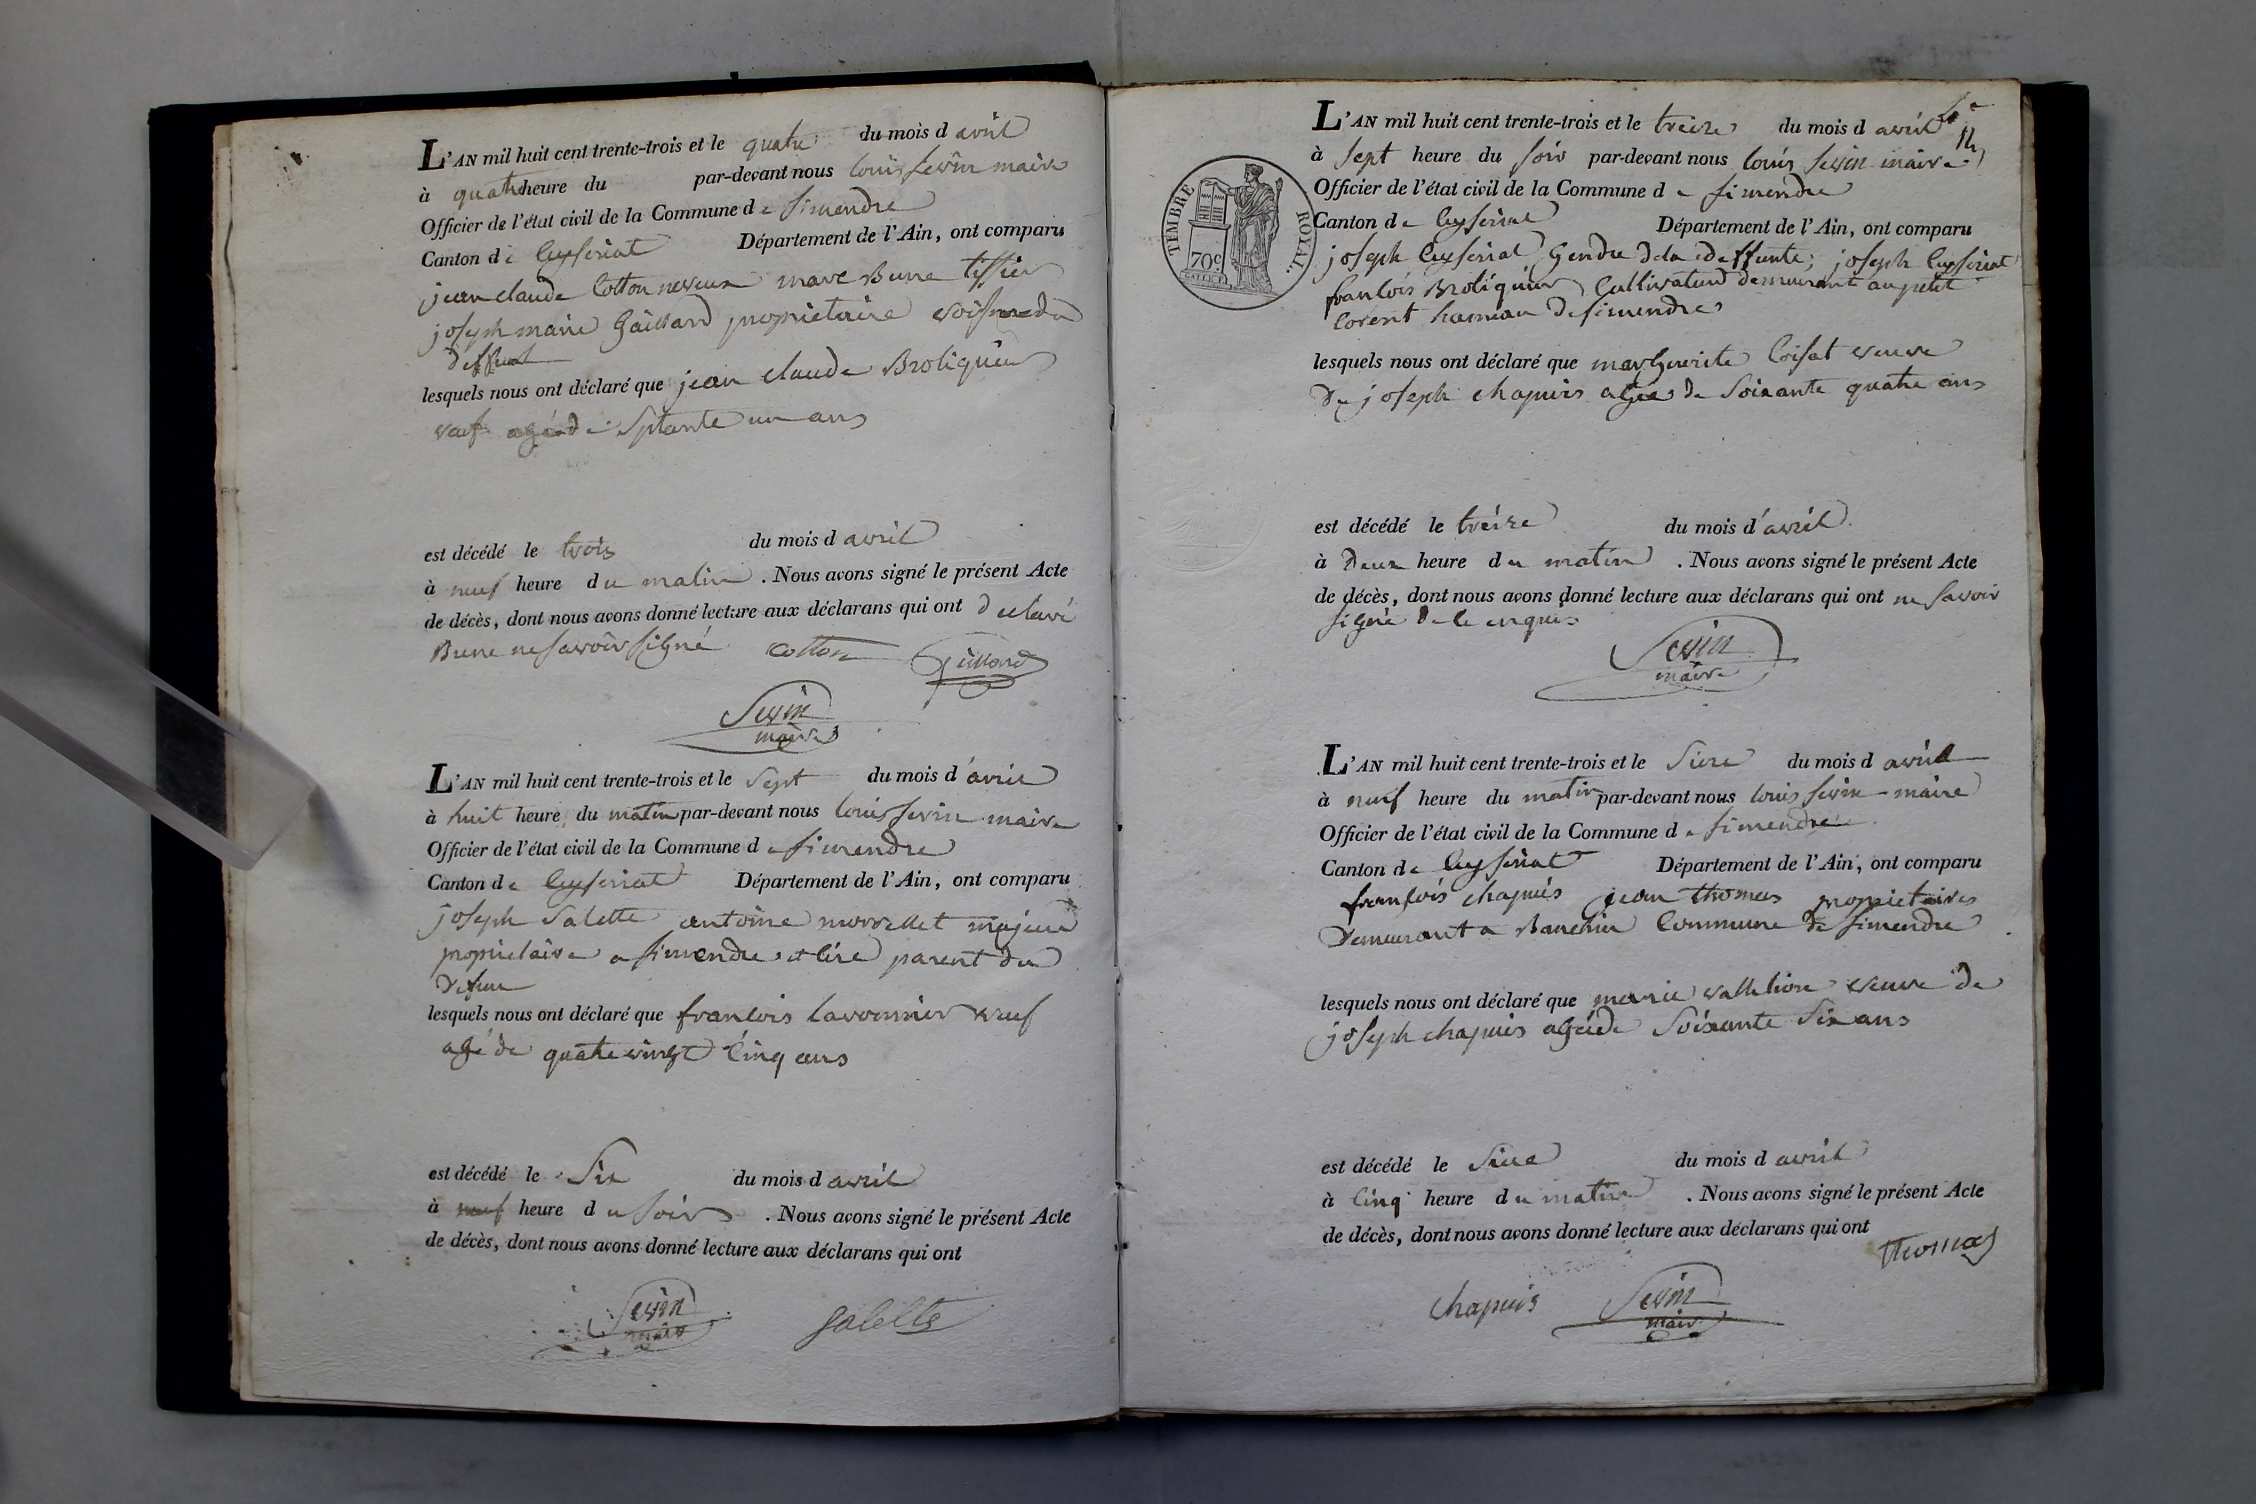 L'AN mil huit cent trente-trois et le quatre du mois d avril
à quatre heure du par-devant nous louis sevin maire
Officier de l'état civil de la Commune d e simendre
Canton d e Ceyseriat Département de l'Ain, ont comparu
jean claude Cotton neveux marc Bune tissier
joseph marie Gaillard proprietaire voisin du
deffunt
lesquels nous ont déclaré que jean claude Broliquier
veuf agé de Sptante un ans
est décédé le trois du mois d avril
à neuf heure d u matin . Nous avons signé le présent Acte
de décès, dont nous avons donné lecture aux déclarans qui ont declaré
Bune ne savoir signé cotton Gaillard
Sevin
maire
L'AN mil huit cent trente-trois et le Sept du mois d'avril
à huit heure du matin par-devant nous louis sevin maire
Officier de l'état civil de la Commune d e simendre
Canton d e Ceyseriat Département de l'Ain, ont comparu
joseph Salette antoine morrellet majeur
proprietaire a simendre et parent du
Defun
lesquels nous ont déclaré que francois lavommier veuf
agé de quatre vingt Cinq ans
est décédé le Six du mois d avril
à neuf heure d u soir . Nous avons signé le présent Acte
de décès, dont nous avons donné lecture aux déclarans qui ont
Sevin
maire
Salette
TIMBRE ROYAL.
70c
L'AN mil huit cent trente-trois et le treize du mois d avril
à sept heure du soir par-devant nous louis sevin maire
Officier de l'état civil de la Commune d e simendre
Canton d e Ceyseriat Département de l'Ain, ont comparu
joseph Ceyseriat Gendre de la deffunte; joseph Ceyseriat
francois Broliquier Cultivateur demeurant au petit
Corent hameau de simendre
lesquels nous ont déclaré que marguerite Croisat veuve
De joseph chapuis agée de Soixante quatre ans
est décédé le treize du mois d'avril
à Deux heure d u matin . Nous avons signé le présent Acte
de décès, dont nous avons donné lecture aux déclarans qui ont ne savoir
signé de ce enquis
Sevin
maire
L'AN mil huit cent trente-trois et le Size du mois d avril
à neuf heure du matin par-devant nous louis sevin maire
Officier de l'état civil de la Commune d e simendre
Canton d e Ceyseriat Département de l'Ain, ont comparu
francois chapuis jean thomas proprietaires
Demeurant a Banchin Commune de simendre
lesquels nous ont déclaré que marie vallelion veuve de
joseph chapuis agée de Soixante Six ans
est décédé le Size du mois d avril
à Cinq heure d u matin . Nous avons signé le présent Acte
de décès, dont nous avons donné lecture aux déclarans qui ont
thomas
chapuis Sevin
maire